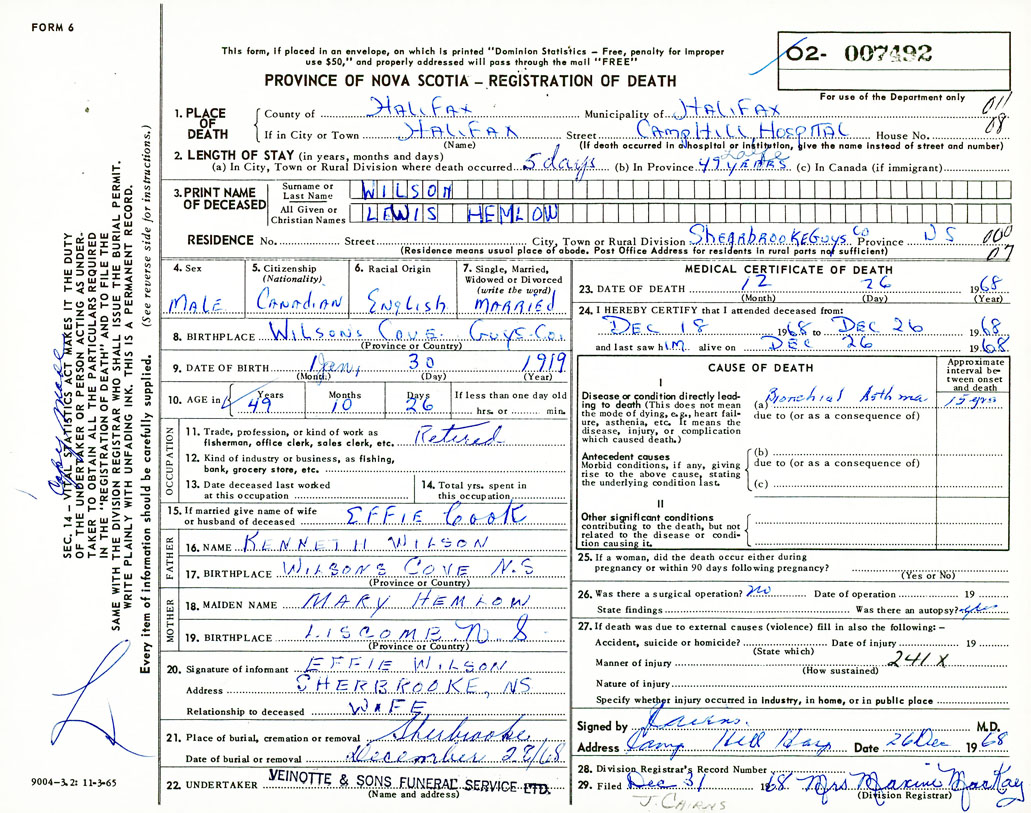 FORM 6
This form, if placed in an envelope, on which is printed "Dominion Statistics – Free, penalty for improper
use $50," and properly addressed will pass through the mail "FREE"
PROVINCE OF NOVA SCOTIA – REGISTRATION OF DEATH
02- 007492
For use of the Department only
011
08
1. PLACE OF DEATH
County of HALIFAX Municipality of HALIFAX
If in City or Town HALIFAX Street CAMP HILL HOSPITAL House No.
(Name) (If death occurred in a hospital or institution, give the name instead of street and number)
2. LENGTH OF STAY (in years, months and days)
(a) In City, Town or Rural Division where death occurred 5 days (b) In Province 49 YEARS Life (c) In Canada (if immigrant)
3. PRINT NAME OF DECEASED
Surname or Last Name WILSON
All Given or Christian Names LEWIS HEMLOW
RESIDENCE No. Street City, Town or Rural Division SHERBROOKE GUYS CO Province NS
000
07
(Residence means usual place of abode. Post Office Address for residents in rural parts not sufficient)
4. Sex MALE
5. Citizenship (Nationality) CANADIAN
6. Racial Origin ENGLISH
7. Single, Married, Widowed or Divorced (write the word) MARRIED
8. BIRTHPLACE WILSONS COVE GUYS. CO.
(Province or Country)
9. DATE OF BIRTH Jan, 30 1919
(Month) (Day) (Year)
10. AGE in Years 49 Months 10 Days 26 If less than one day old hrs. or min.
OCCUPATION
11. Trade, profession, or kind of work as fisherman, office clerk, sales clerk, etc. Retired
12. Kind of industry or business, as fishing, bank, grocery store, etc.
13. Date deceased last worked at this occupation
14. Total yrs. spent in this occupation
15. If married give name of wife or husband of deceased EFFIE COOK
FATHER
16. NAME KENNETH WILSON
17. BIRTHPLACE WILSONS COVE N.S
(Province or Country)
MOTHER
18. MAIDEN NAME MARY HEMLOW
19. BIRTHPLACE LISCOMB N S
(Province or Country)
20. Signature of informant EFFIE WILSON
Address SHERBROOKE, NS
Relationship to deceased WIFE
21. Place of burial, cremation or removal Sherbrooke
Date of burial or removal December 28/68
22. UNDERTAKER VEINOTTE & SONS FUNERAL SERVICE LTD.
(Name and address)
MEDICAL CERTIFICATE OF DEATH
23. DATE OF DEATH 12 26 1968
(Month) (Day) (Year)
24. I HEREBY CERTIFY that I attended deceased from:
DEC 18 1968 to DEC 26 1968
and last saw him alive on DEC 26 1968
CAUSE OF DEATH
Approximate interval between onset and death
I
Disease or condition directly leading to death (This does not mean the mode of dying, e.g., heart failure, asthenia, etc. It means the disease, injury, or complication which caused death.)
(a) Bronchial Asthma 15 yrs
due to (or as a consequence of)
Antecedent causes
Morbid conditions, if any, giving rise to the above cause, stating the underlying condition last.
(b)
due to (or as a consequence of)
(c)
II
Other significant conditions
contributing to the death, but not related to the disease or condition causing it.
25. If a woman, did the death occur either during
pregnancy or within 90 days following pregnancy?
(Yes or No)
26. Was there a surgical operation? no Date of operation 19
State findings Was there an autopsy? yes
27. If death was due to external causes (violence) fill in also the following: –
Accident, suicide or homicide? Date of injury 19
(State which)
Manner of injury 241X
(How sustained)
Nature of injury
Specify whether injury occurred in industry, in home, or in public place
Signed by J Cairns. M.D.
Address Camp Hill Hosp Date 26 Dec 1968
28. Division Registrar's Record Number
29. Filed Dec 31 1968 Mrs Maxine MacKay
(Division Registrar)
J. CAIRNS
SEC. 14 – VITAL STATISTICS ACT MAKES IT THE DUTY
OF THE UNDERTAKER OR PERSON ACTING AS UNDER-
TAKER TO OBTAIN ALL THE PARTICULARS REQUIRED
IN THE "REGISTRATION OF DEATH" AND TO FILE THE
SAME WITH THE DIVISION REGISTRAR WHO SHALL ISSUE THE BURIAL PERMIT.
WRITE PLAINLY WITH UNFADING INK. THIS IS A PERMANENT RECORD.
Every item of information should be carefully supplied. (See reverse side for instructions.)
9004-3.2: 11-3-65